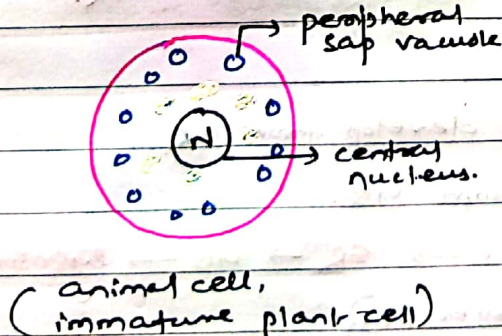 peripheral
sap vacuole
N
central
nucleus.
(animal cell,
immature plant cell)